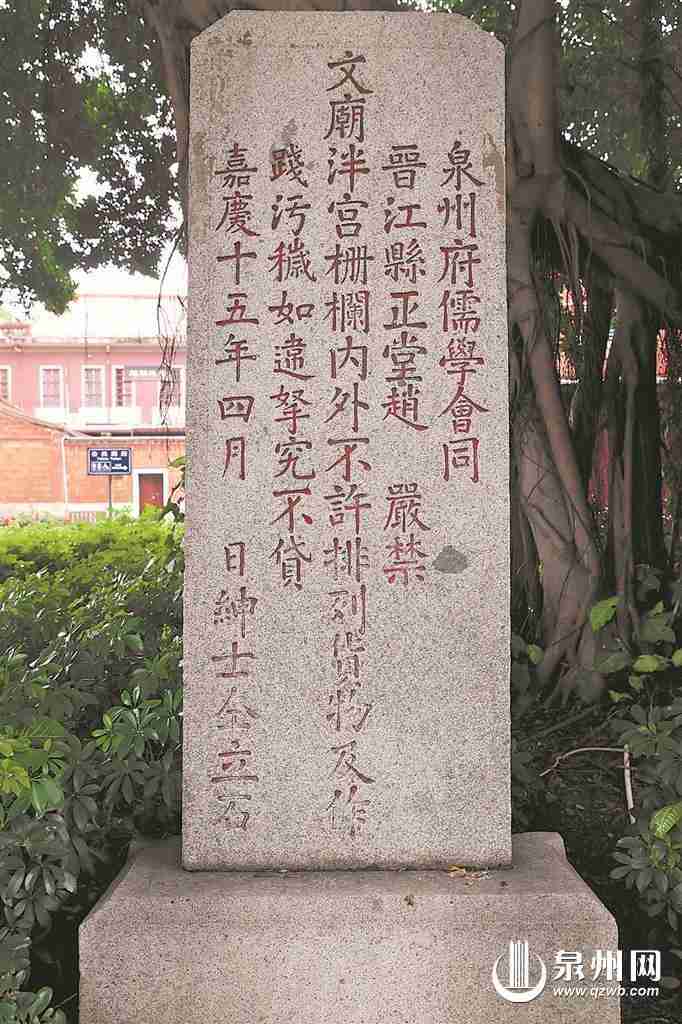 泉州府儒學會同
晉江縣正堂趙 嚴禁
文廟泮宮柵欄內外不許排列貨物及作
踐污穢如違拏究不貸
嘉慶十五年四月 日紳士仝立石
泉州网
www.qzwb.com